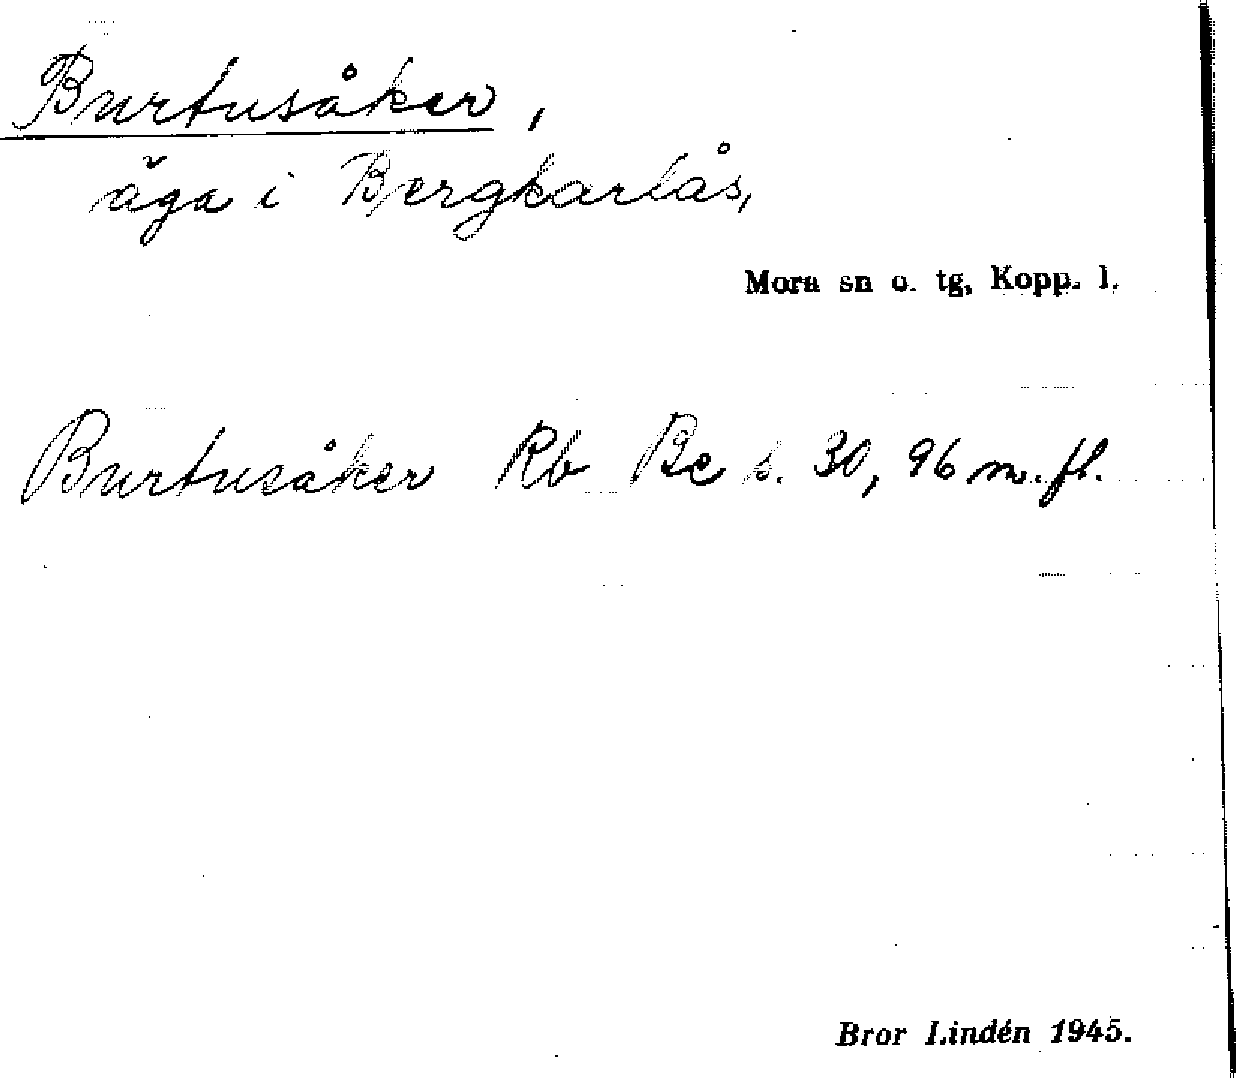 Burtusåker,
äga i Bergkarlås,
Mora sn o. tg, Kopp. l.
Burtusåker Rb Be s. 30, 96 m.fl.
Bror Lindén 1945.